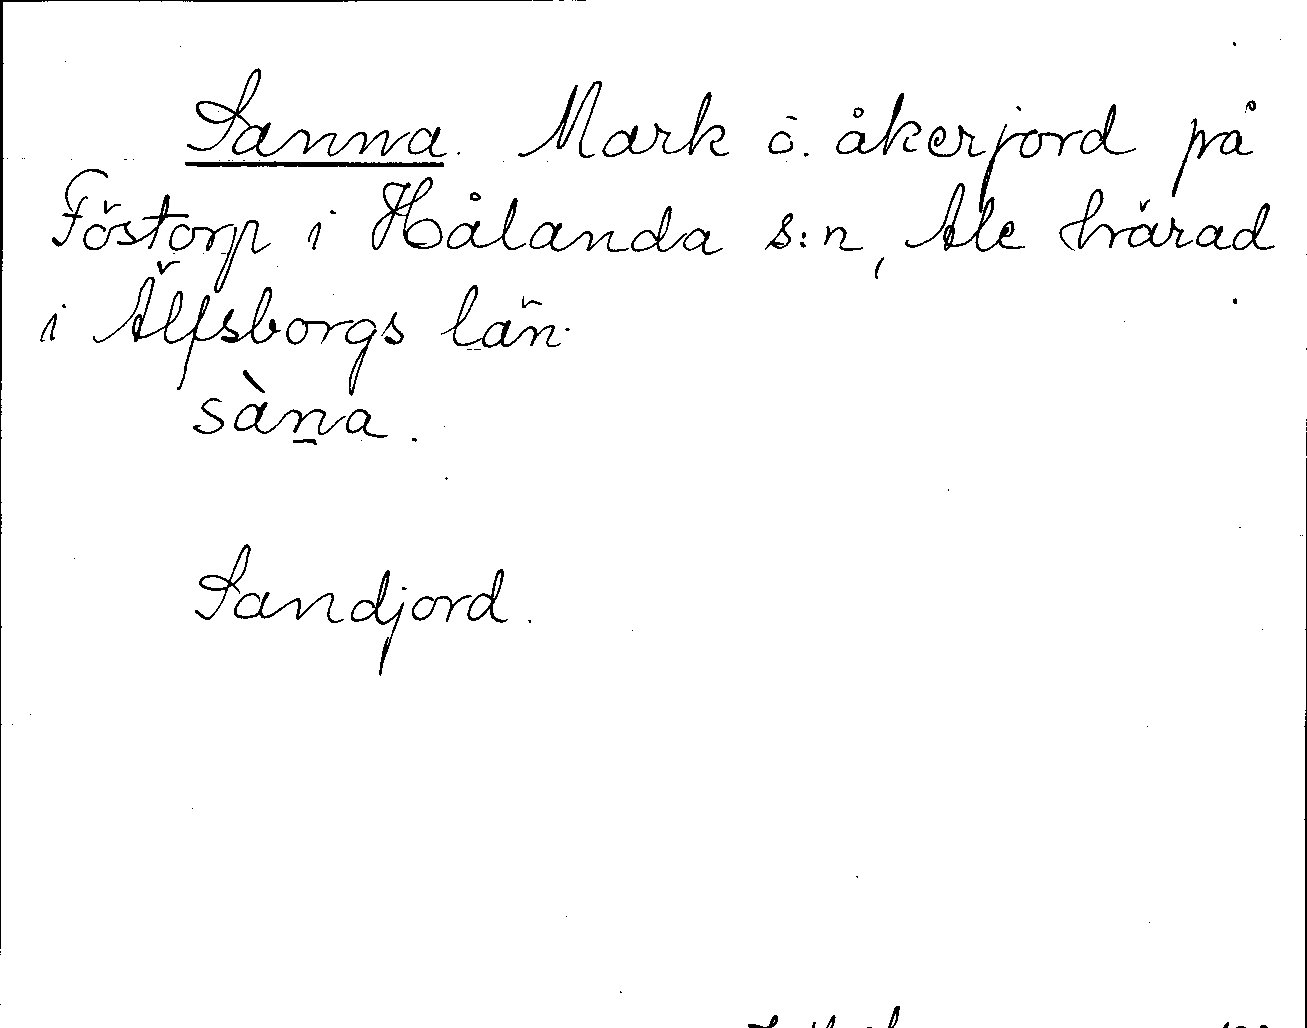 Sanna. Mark ö. åkerjord på
Föstorp i Hålanda s:n, Ale härad
i Älfsborgs län.
sàn̲a.
Sandjord.